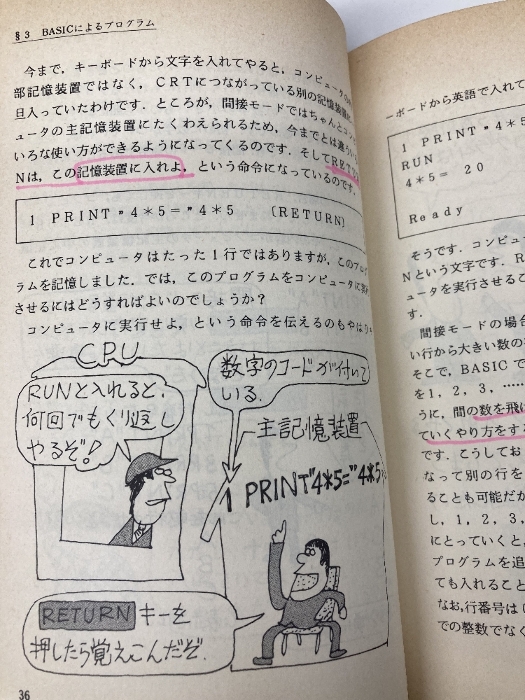 §3 BASICによるプログラム
今まで，キーボードから文字を入れてやると，コンピュータの
部記憶装置ではなく，CRTにつながっている別の記憶装置
旦入っていたわけです．ところが，間接モードではちゃんとコン
ュータの主記憶装置にたくわえられるため，今までとは違
いろな使い方ができるようになってくるのです．そしてRE
Nは，この記憶装置に入れよ，という命令になっているのです．
1 PRINT" 4＊5＝" 4＊5 〔RETURN〕
これでコンピュータはたった1行ではありますが，このプログ
ラムを記憶しました．では，このプログラムをコンピュータに実行
させるにはどうすればよいのでしょうか？
コンピュータに実行せよ，という命令を伝えるのもやはり
CPU
RUNと入れると，
何回でもくり返し
やるぞ！
数字のコードが付いて
いる．
主記憶装置
1 PRINT"4＊5="4＊5
RETURN キーを
押したら覚えこんだぞ．
36
ーボードから英語で入れて
1 PRINT" 4＊5
RUN
4＊5＝ 20
Ready
そうです．コンピュ
Nという文字です．R
ュータを実行させるこ
す．
間接モードの場合
い行から大きい数の
そこで，BASICで
を1，2，3，……
うに，間の数を飛
ていくやり方をす
です．こうしてお
なって別の行を
ることも可能だか
し，1，2，3，
にとっていくと，
プログラムを追
ても入れること
なお，行番号は
での整数でなく